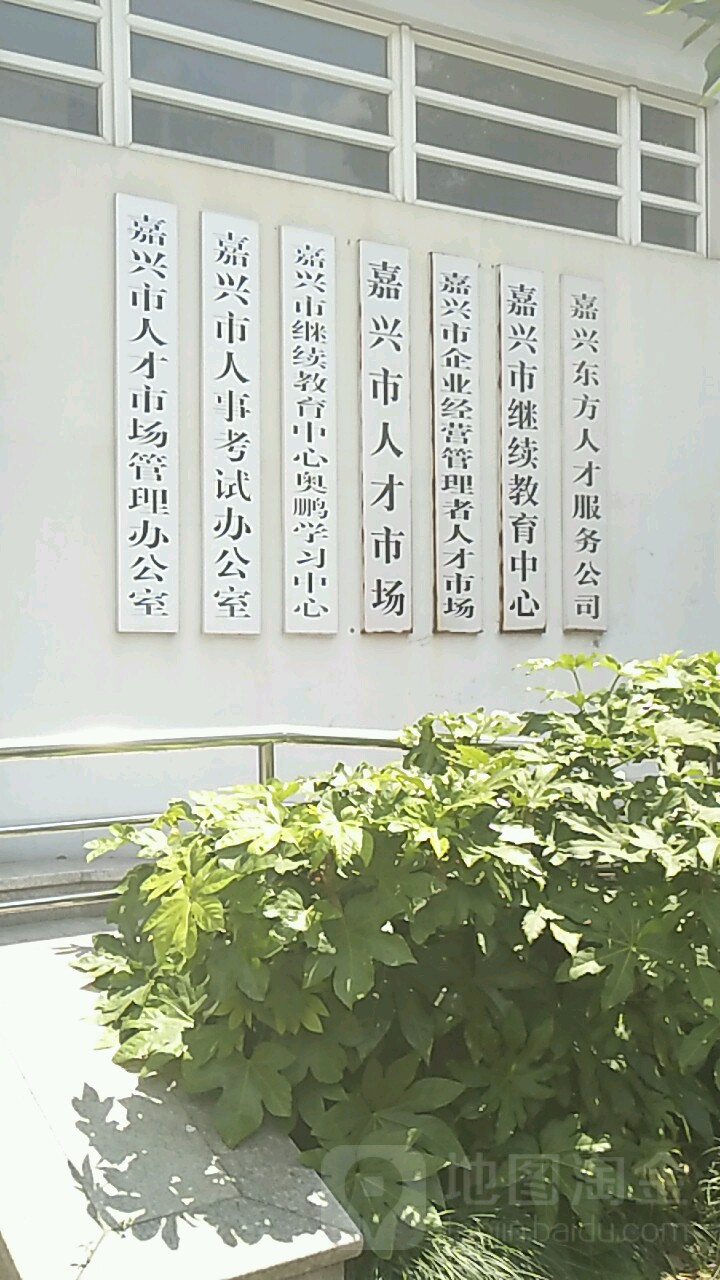 嘉兴市人才市场管理办公室
嘉兴市人事考试办公室
嘉兴市继续教育中心奥鹏学习中心
嘉兴市人才市场
嘉兴市企业经营管理者人才市场
嘉兴市继续教育中心
嘉兴东方人才服务公司
地图淘金